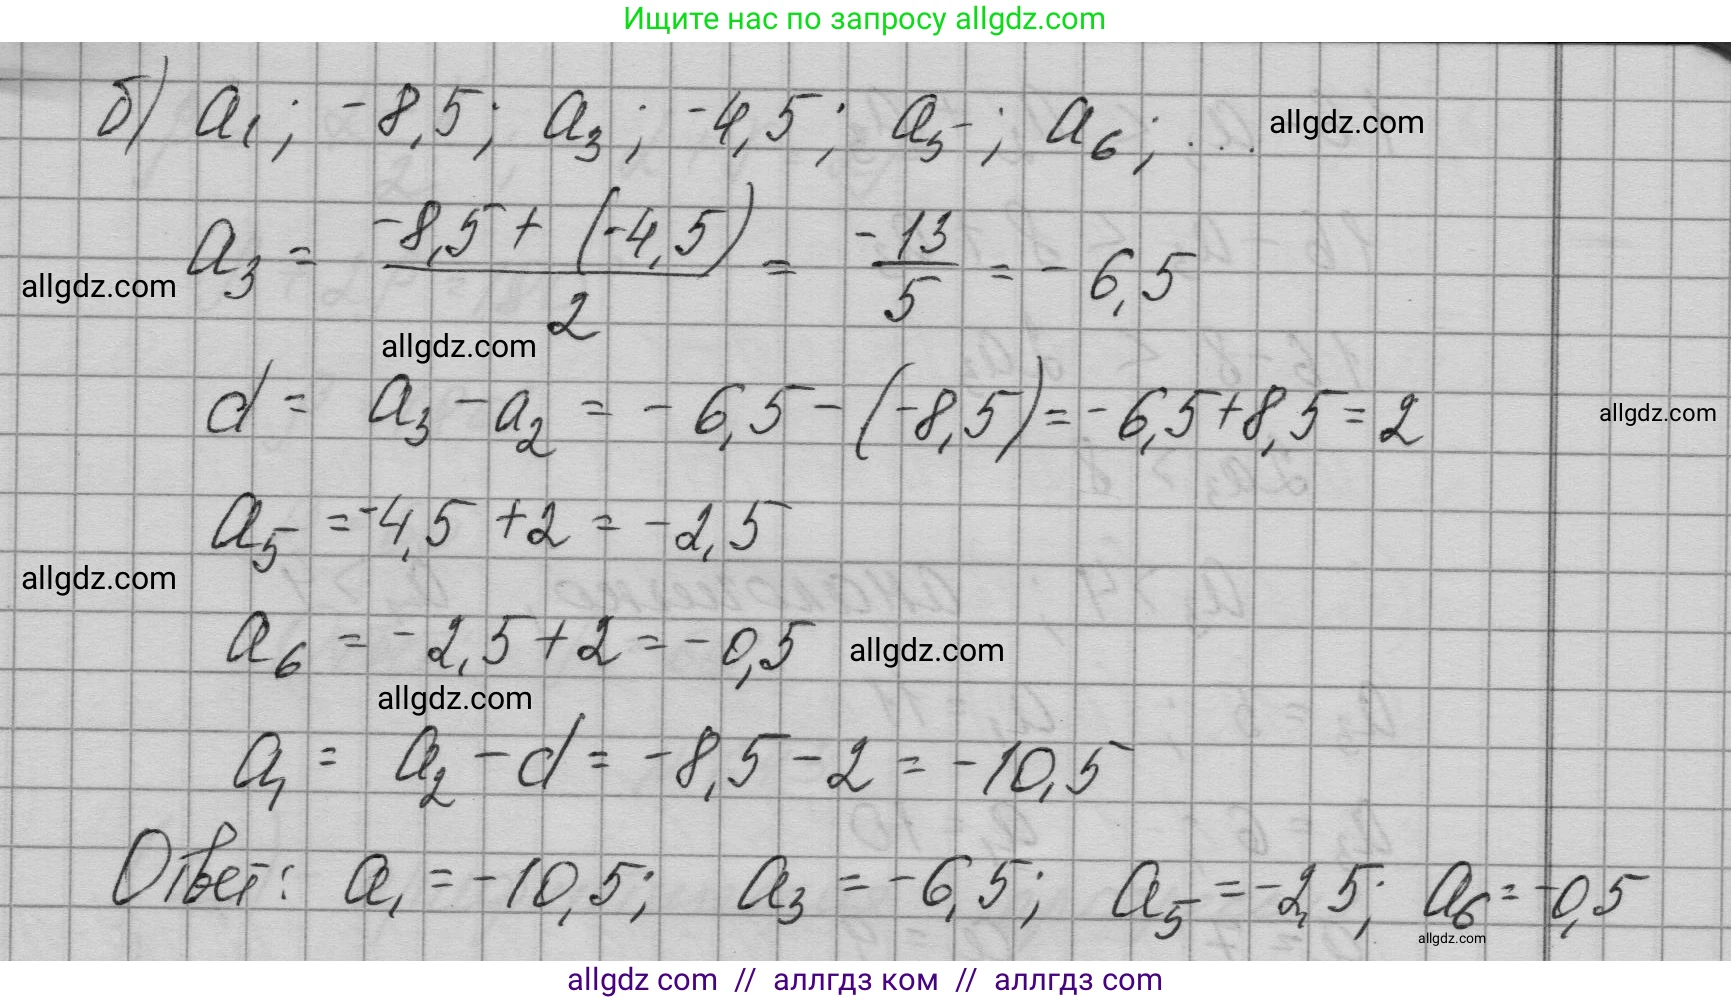 Ищите нас по запросу allgdz.com
б) a₁; -8,5; a₃; -4,5; a₅; a₆; ...
allgdz.com
a₃ = (-8,5 + (-4,5))/2 = -13/5 = -6,5
allgdz.com
allgdz.com
d = a₃ - a₂ = -6,5 - (-8,5) = -6,5 + 8,5 = 2
allgdz.com
a₅ = -4,5 + 2 = -2,5
allgdz.com
a₆ = -2,5 + 2 = -0,5
allgdz.com
allgdz.com
a₁ = a₂ - d = -8,5 - 2 = -10,5
Ответ: a₁ = -10,5; a₃ = -6,5; a₅ = -2,5; a₆ = -0,5
allgdz.com
allgdz com // аллгдз ком // аллгдз com